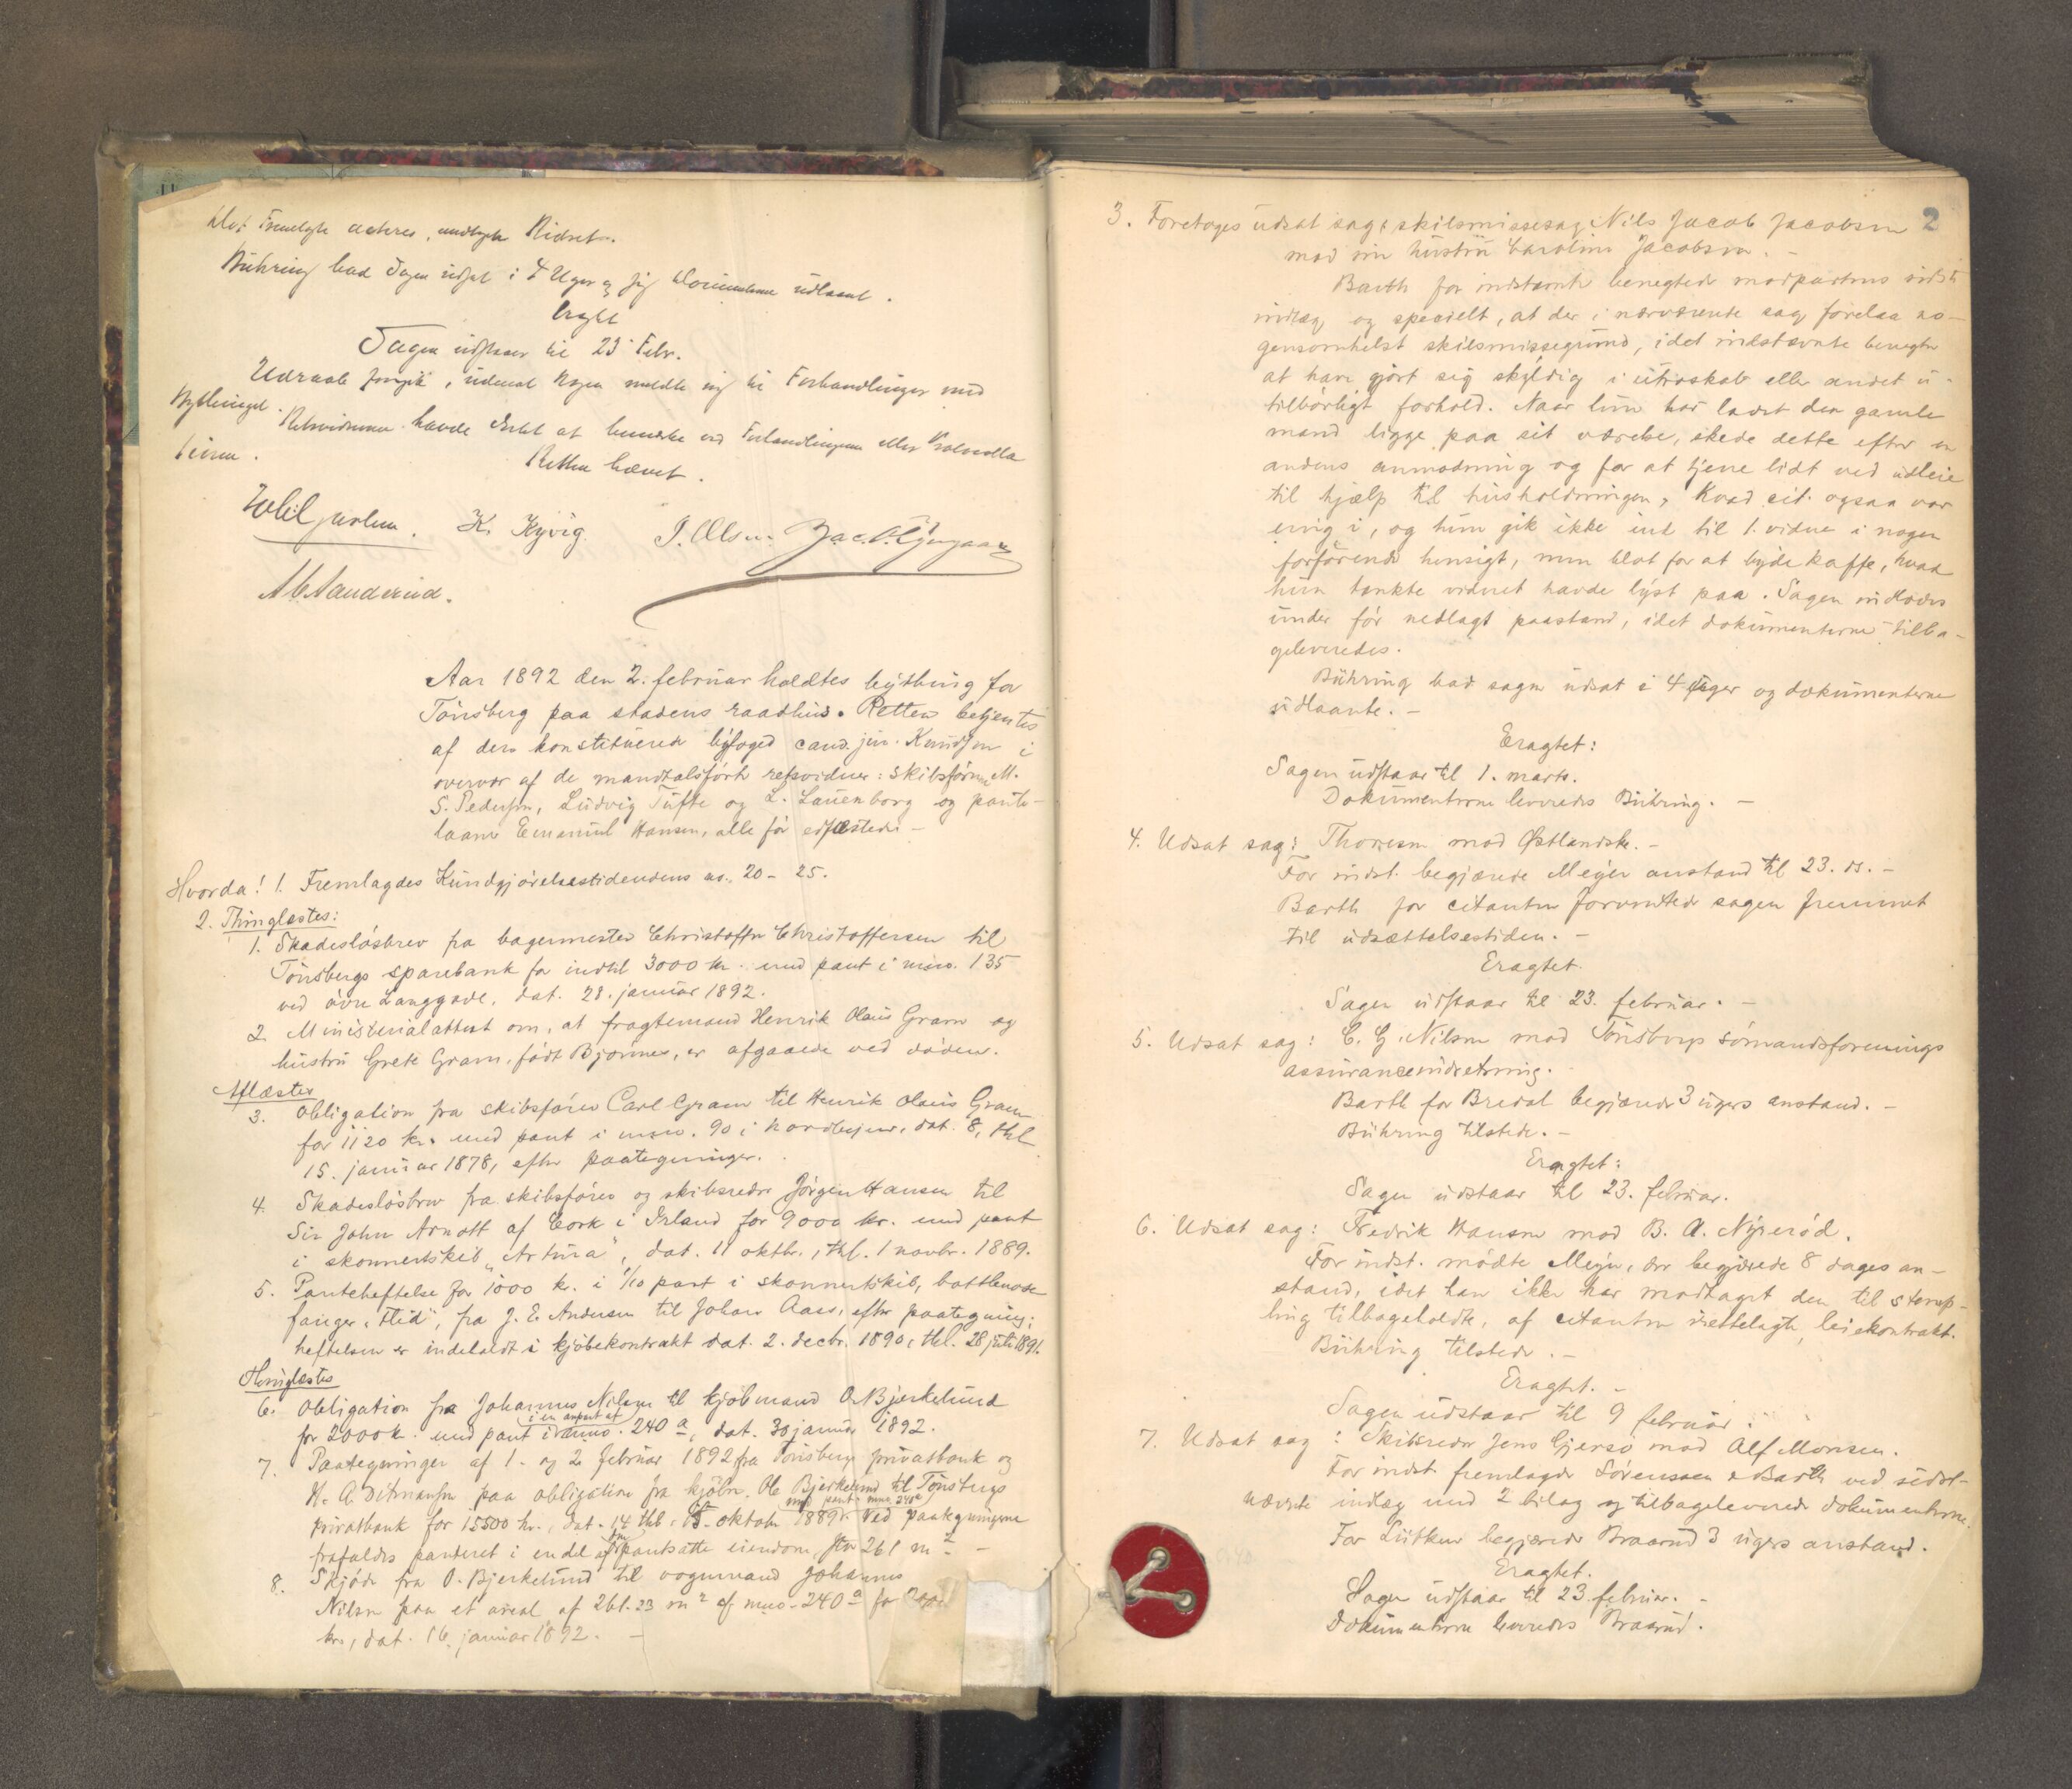 det Fremlagte acteres, undtagen Ridset.
Bühring bad Sagen udsat i 4 Uger og sig Documenterne udlaant.
Eragtet
Sagen udstaaer til 23 Febr.
Udraab foregik, uden at Nogen meldte sig til Forhandlinger med
Retsvidnerne havde Intet at bemærke ved Forhandlingerne eller Protocolla-
tionen.
Retten hævet.
K. Kyvig. J. Olsen.
Aar 1892 den 2. februar holdtes bything for
Tönsberg paa stadens raadhus. Retten betjentes
af den konstituerede byfoged cand. jur. Knudsen i
overvær af de mandtalsförte retsvidner: skibsförerne M.
S. Pedersen, Ludvig Tufte og L. Lauenborg og pante-
laaner Emanuel Hansen, alle för edfæstede. –
Hvorda! 1. Fremlagdes Kundgjörelsestidendens no. 20 – 25.
2. Thinglæstes:
1. Skadeslösbrev fra bagermester Christoffer Christoffersen til
Tönsbergs sparebank for indtil 3000 kr. med pant i mno. 135
ved övre Langgade, dat. 28. januar 1892.
2. Ministerialattest om, at fragtemand Henrik Olaus Gram og
hustru Grete Gram, födt Bjönnes, er afgaaede ved döden.
Aflæstes
3. Obligation fra skibsförer Carl Gram til Henrik Olaus Gram
for 1120 kr. med pant i mno. 90 i Nordbyen, dat. 8, thl.
15. januar 1878, efter paategninger.
4. Skadeslösbrev fra skibsförer og skibsreder Jörgen Hansen til
Sir John Arnott af Cork i Irland for 9000 kr. med pant
i skonnertskib "Artura", dat. 11 oktbr., thl. 1 novbr. 1889.
5. Panteheftelse for 1000 kr. i 1/10 part i skonnertskib, bottlenose
fanger "Flid", fra J. E. Andersen til Johan Aas, efter paategning;
heftelsen er indeholdt i kjöbekontrakt dat. 2. decbr. 1890, thl. 28 juli 1891.
Thinglæstes
6. Obligation fra Johannes Nilsen til kjöbmand O. Bjerkelund
for 2000 kr. med pant i en anpart af mno. 240 a, dat. 30 januar 1892.
7. Paategninger af 1. og 2. februar 1892 fra Tönsbergs privatbank og
H. A. Ditmansen paa obligation fra kjöbm. Ole Bjerkelund til Tönsbergs
privatbank for 15500 kr., med pant i mno. 240 a dat. 14 thl. 15. oktobr. 1889. Ved paategningerne
frafaldes panteret i en del af den pantsatte eiendom, stor 261 m2. –
8. Skjöde fra O. Bjerkelund til vognmand Johannes
Nilsen paa et areal af 261.23 m2 af mno. 240 a for
kr., dat. 16. januar 1892. –
2
3. Foretoges udsat sag: skilsmissesag Nils Jacob Jacobsen
mod sin hustru Caroline Jacobsen. –
Barth for indstævnte benegtede modpartens sidste
indlæg og specielt, at der i nærværende sag forelaa no-
gensomhelst skilsmissegrund, idet indstævnte benegter
at have gjört sig skyldig i utroskab eller andet u-
tilbörligt forhold. Naar hun har ladet den gamle
mand ligge paa sit værelse, skede dette efter en
andens anmodning og for at tjene lidt ved udleie
til hjælp til husholdningen, hvad cit. ogsaa var
enig i, og hun gik ikke ind til 1. vidne i nogen
forförende hensigt, men blot for at byde kaffe, hvad
hun tænkte vidnet havde lyst paa. Sagen indlodes
under för nedlagt paastand, idet dokumenterne tilba-
geleveredes.
Bühring bad sagen udsat i 4 uger og dokumenterne
udlaante. –
Eragtet:
Sagen udstaar til 1. marts.
Dokumenterne leveredes Bühring. –
4. Udsat sag: Thoresen mod Østlandske. –
For indst. begjærede Meyer anstand til 23. ds. –
Barth for citanten forventede sagen fremmet
til udsættelsestiden. –
Eragtet.
Sagen udstaar til 23. februar. –
5. Udsat sag: C. G. Nilsen mod Tönsbergs sömandsforenings
assuranceindretning.
Barth for Bredal begjærede 3 ugers anstand. –
Bühring tilstede. –
Eragtet:
Sagen udstaar til 23. februar.
6. Udsat sag: Fredrik Hansen mod B. A. Nyeröd.
For indst. mödte Meyer, der begjærede 8 dages an-
stand, idet han ikke har modtaget den til stemp-
ling tilbageholdte, af citanten irettelagte leiekontrakt.
Bühring tilstede. –
Eragtet. –
Sagen udstaar til 9 februar.
7. Udsat sag: Skibsreder Jens Gjersö mod Alf Monsen.
For indst. fremlagde Sörenssen & Barth ved sidst-
nævnte indlæg med 2 bilag og tilbageleverede dokumenterne.
For Lütken begjærede Braarud 3 ugers anstand.
Eragtet.
Sagen udstaar til 23 februar. –
Dokumenterne leveredes Braarud.